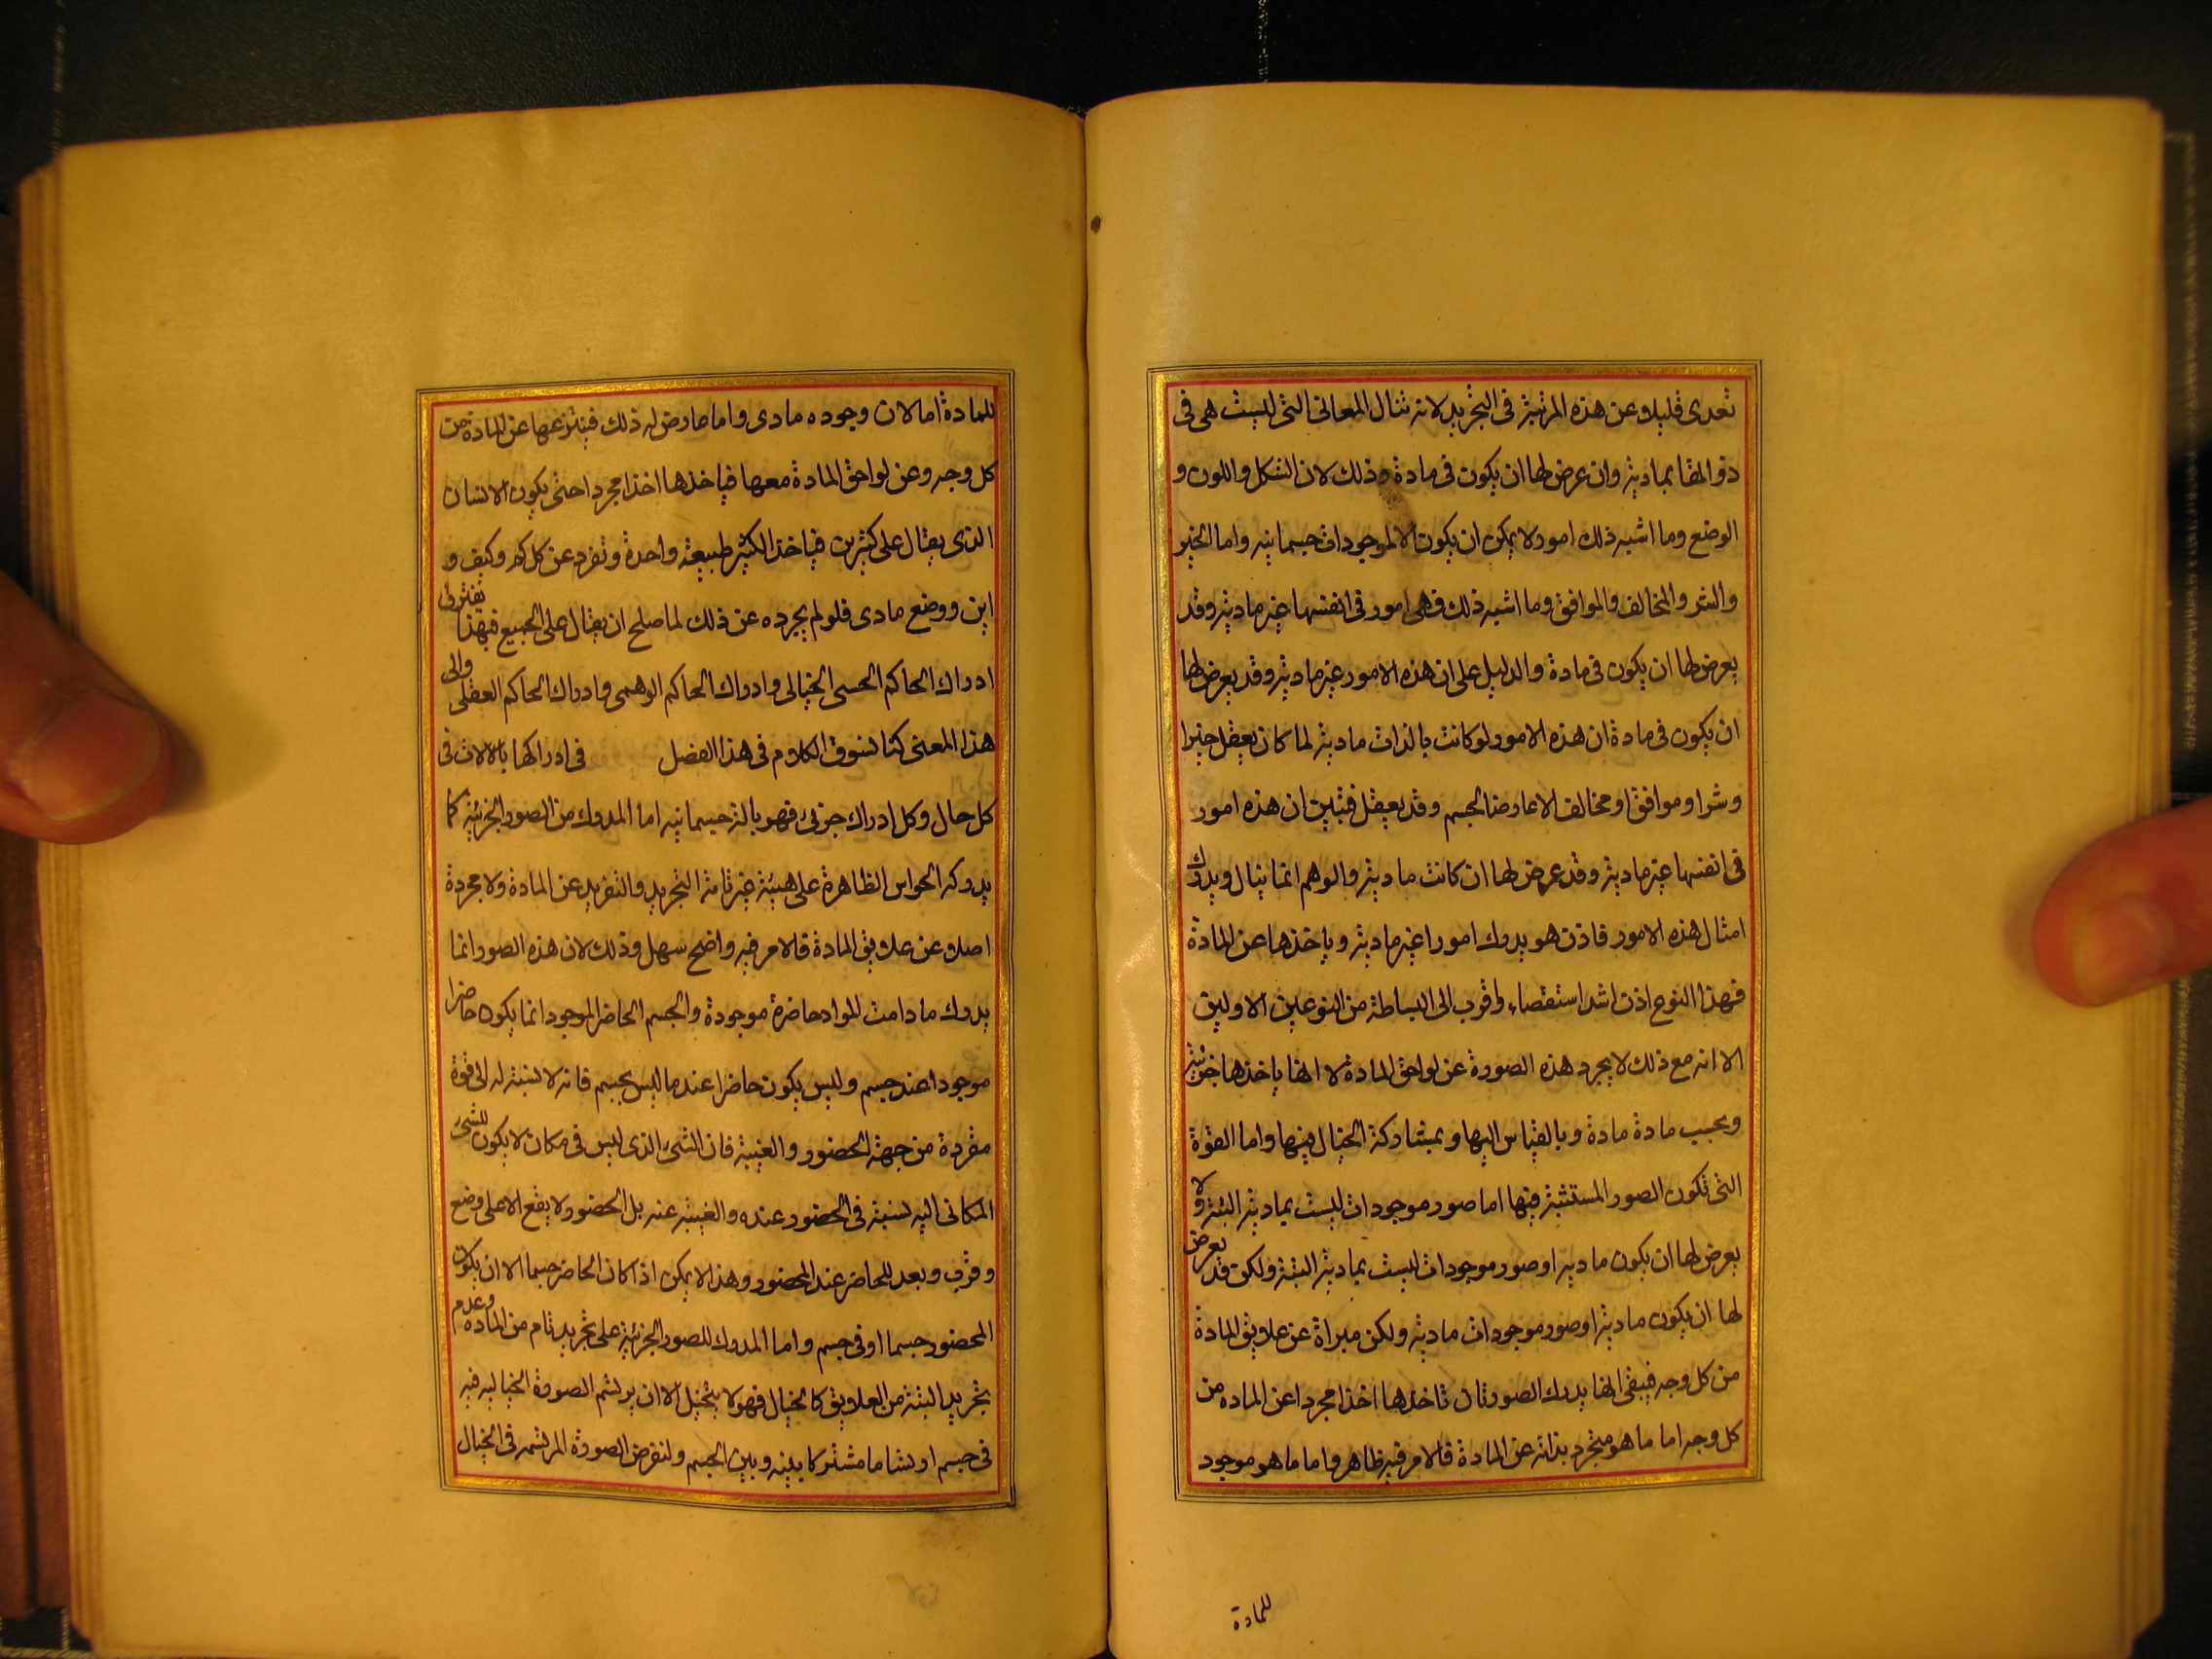 تعدى قليلا عن هذه المرتبة فى التجريد لانه تنال المعانى التى ليست هى فى
ذو المقا بمادية وان عرض لها ان يكون فى مادة وذلك لان الشكل واللون و
الوضع وما اشبه ذلك امور لا يمكن ان يكون الا لموجودات جسمانيه واما الخير
والشر والمخالف والموافق وما اشبه ذلك فهى امور فى انفسها غير مادية وقد
يعرض لها ان يكون فى مادة والدليل على ان هذه الامور غير مادية وقد يعرض لها
ان يكون فى مادة ان هذه الامور لو كانت بالذات مادية لما كان يعقل خيرا
وشرا وموافق او مخالف الا عارضا لجسم وقد يعقل فتبين ان هذه امور
فى انفسها غير مادية وقد عرض لها ان كانت مادية والوهم انما ينال ويدرك
امثال هذه الامور فاذن هو يدرك امورا غير مادية وياخذها عن المادة
فهذا النوع اذن اشد استقصاء واقرب الى البساطة من النوعين الاولين
الا انه مع ذلك لا يجرد هذه الصورة عن لواحق المادة لا انها ياخذها جزئية
وبحسب مادة مادة وبالقياس اليها وبمشاركة الخيال فيها واما القوة
التى تكون الصور المستثبتة فيها اما صور موجودات ليست بمادية البتة ولا
يعرض لها ان يكون ماديه او صور موجودات ليست بمادية البتة ولكن قد يعرض
لها ان يكون مادية او صور موجودات مادية ولكن مبراة عن علايق المادة
من كل وجه فيبقى انها يدرك الصورتان تاخذها اخذا مجردا عن الماده من
كل وجه اما ما هو متجرد بذاته عن المادة فالامر فيه ظاهر واما ما هو موجود
للمادة
للمادة اما لان وجوده مادى واما عارض له ذلك فينتزعها عن المادة من
كل وجه وعن لواحق المادة معها فياخذها اخذا مجردا حتى يكون الانسان
الذى يقال على كثيرين فياخذ الكثير طبيعته واحدة وتفرد عن كل كم وكيف و
اين ووضع مادى فلو لم يجرده عن ذلك لما صلح ان يقال على الجميع فبهذا يفترق
ادراك الحاكم الحسى الخيالى وادراك الحاكم الوهمى وادراك الحاكم العقلى والى
هذا المعنى كنا نسوق الكلام فى هذا الفصل فى ادراكها بالالات فى
كل حال وكل ادراك جزئى فهو بالة جسمانيه اما المدرك من الصور الجزئية كما
يدركه الحواس الظاهرة على هيئة غير تامة التجريد والتفريد عن المادة ولا مجردة
اصلا عن علايق المادة فالامر فيه واضح سهل وذلك لان هذه الصور انما
يدرك ما دامت المواد حاضرة موجودة والجسم الحاضر الموجود انما يكون حاضرا
موجودا عند جسم وليس يكون حاضرا عند ما ليس بجسم فانه لا نسبة له الى قوة
مفردة من جهة الحضور والغيبة فان الشئ الذى ليس فى مكان لا يكون للشئ
المكانى اليه نسبة فى الحضور عنده والغيبه عنه بل الحضور لا يقع الا على وضع
وقرب وبعد للحاضر عند المحضور وهذا لا يمكن اذا كان الحاضر جسما الا ان يكون
المحضور جسما او فى جسم واما المدرك للصور الجزئية على تجريد تام من المادة وعدم
تجريد البتة من العلايق كالخيال فهو لا يتخيل الا ان يرتسم الصورة الخياليه فيه
فى جسم ارتساما مشتركا بينه وبين الجسم ولنفرض الصورة المرتسمة فى الخيال